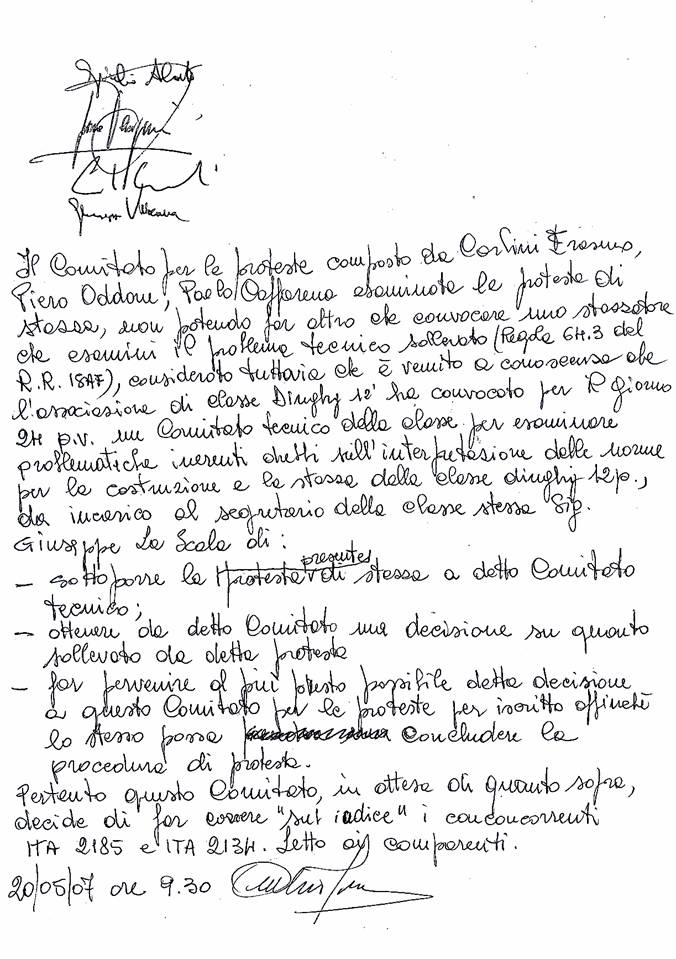 Il Comitato per le proteste composto da Carlini Erasmo,
Piero Oddone, Paolo Caffarena esaminata la protesta di
stassa, non potendo far altro che convocare uno stassatore
che esamini il problema tecnico sollevato (Regola 64.3 del
R.R. ISAF), considerato tuttavia che è venuto a conoscensa che
l'associasione di classe Dinghy 12' ha convocato per il giorno
24 p.v. un Comitato tecnico della classe per esaminare
problematiche inerenti detti sull'interpretasione delle norme
per la costruzione e la stassa della classe dinghy 12p.,
da incarico al segretario della classe stessa Sig.
Giuseppe La Scala di:
- sottoporre la protesta presente di stessa a detto Comitato
tecnico;
- ottenere da detto Comitato una decisione su quanto
sollevato da detta protesta
- far pervenire al più presto possibile detta decisione
a questo Comitato per le proteste per iscritto affinchè
lo stesso possa concludere la
procedura di protesta.
Pertanto questo Comitato, in attesa di quanto sopra,
decide di far correre "sub iudice" i concorrenti
ITA 2185 e ITA 2134. Letto ai comparenti.
20/05/07 ore 9.30